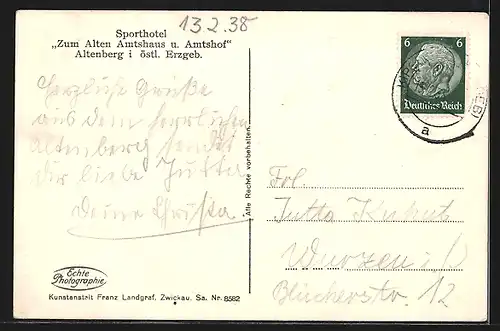 13.2.38
Sporthotel
„Zum Alten Amtshaus u. Amtshof"
Altenberg i östl. Erzgeb.
Herzliche Grüße
aus dem herrlichen
Altenberg sendet
dir liebe Jutta
Deine Christa.
Echte
Photographie
Kunstanstalt Franz Landgraf, Zwickau. Sa. Nr. 8562
Alle Rechte vorbehalten.
6 6
Deutsches Reich
a
Frl.
Jutta
Wurzen i/
Blücherstr. 12